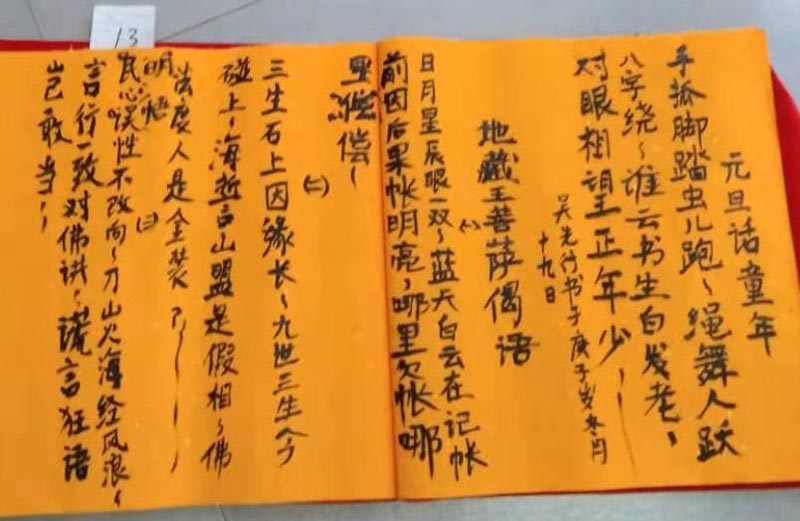 13
元旦话童年
手脚踏虫儿跑、绳舞人跃
八字绕、谁云书生白发老，
对眼相望正年少、
吴先行书于庚子岁冬月
十九日
地藏王菩萨偈语
(一)
日月星辰眼一双、蓝天白云在记帐
前因后果帐明亮，哪里欠帐哪
里偿、
(二)
三生石上因缘长、九世三生今
碰上、海誓山盟是假相、佛
法度人是金装
(三)
明悟
良心误性不改向、刀山火海经风浪、
言行一致对佛讲，谎言狂语
岂敢当！